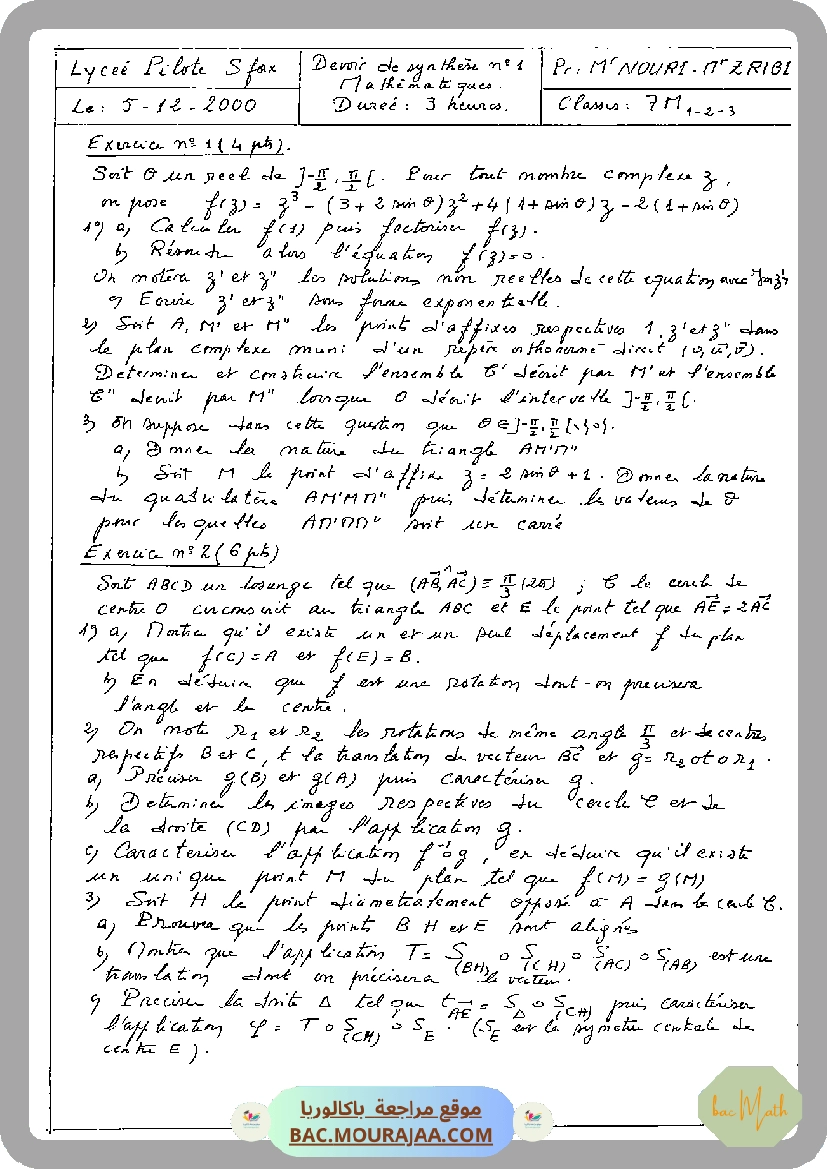 Lyceé Pilote Sfax
Devoir de synthèse n°1
Mathématiques.
Dureé : 3 heures.
Pr: Mr NOURI - Mr ZRIBI
Le: 5-12-2000
Classes: 7M1-2-3
Exercice n°1 (4 pts).
Soit θ un réel de ]-π/2, π/2[. Pour tout nombre complexe z,
on pose f(z) = z³ - (3 + 2 sinθ)z² + 4(1 + sinθ)z - 2(1 + sinθ)
1°) a) Calculer f(1) puis factoriser f(z).
b) Résoudre alors l'équation f(z)=0.
On notera z' et z" les solutions non réelles de cette equation avec
c) Ecrire z' et z" sous forme exponentielle.
2) Soit A, M' et M" les points d'affixes respectives 1, z' et z" dans
le plan complexe muni d'un repère orthonormé direct (o, u⃗, v⃗).
Determiner et construire l'ensemble C' décrit par M' et l'ensemble
C" décrit par M" lorsque θ décrit l'intervalle ]-π/2, π/2[.
3) On suppose dans cette question que θ ∈ ]-π/2, π/2[\{0}.
a) Donner la nature du triangle AM'M"
b) Soit M le point d'affixe z = 2 sinθ + 1. Donner la nature
du quadrilatère AM'MM" puis déterminer les valeurs de θ
pour lesquelles AM'MM" soit un carré
Exercice n°2 (6 pts)
Soit ABCD un losange tel que (AB⃗, AC⃗) ≡ π/3 [2π] ; C le cercle de
centre O circonscrit au triangle ABC et E le point tel que AE⃗ = 2AC⃗
1°) a) Montrer qu'il existe un et un seul déplacement f du plan
tel que f(C) = A et f(E) = B.
b) En déduire que f est une rotation dont on precisera
l'angle et le centre.
2) On note r1 et r2 les rotations de même angle π/3 et de centres
respectifs B et C, t la translation de vecteur BC⃗ et g = r2 o t o r1.
a) Préciser g(B) et g(A) puis caractériser g.
b) Determiner les images respectives du cercle C et de
la droite (CD) par l'application g.
c) Caractériser l'application f⁻¹ o g, en déduire qu'il existe
un unique point M du plan tel que f(M) = g(M)
3) Soit H le point diametralement opposé à A dans le cercle C.
a) Prouver que les points B H et E sont alignés
b) Montrer que l'application T = S(BH) o S(CH) o S(AC) o S(AB) est une
translation dont on précisera le vecteur.
c) Preciser la droite Δ tel que tAE⃗ = SΔ o S(CH) puis caractériser
l'application φ = T o S(CH) o SE. (SE est la symétrie centrale de
centre E).
موقع مراجعة باكالوريا
BAC.MOURAJAA.COM
bac Math